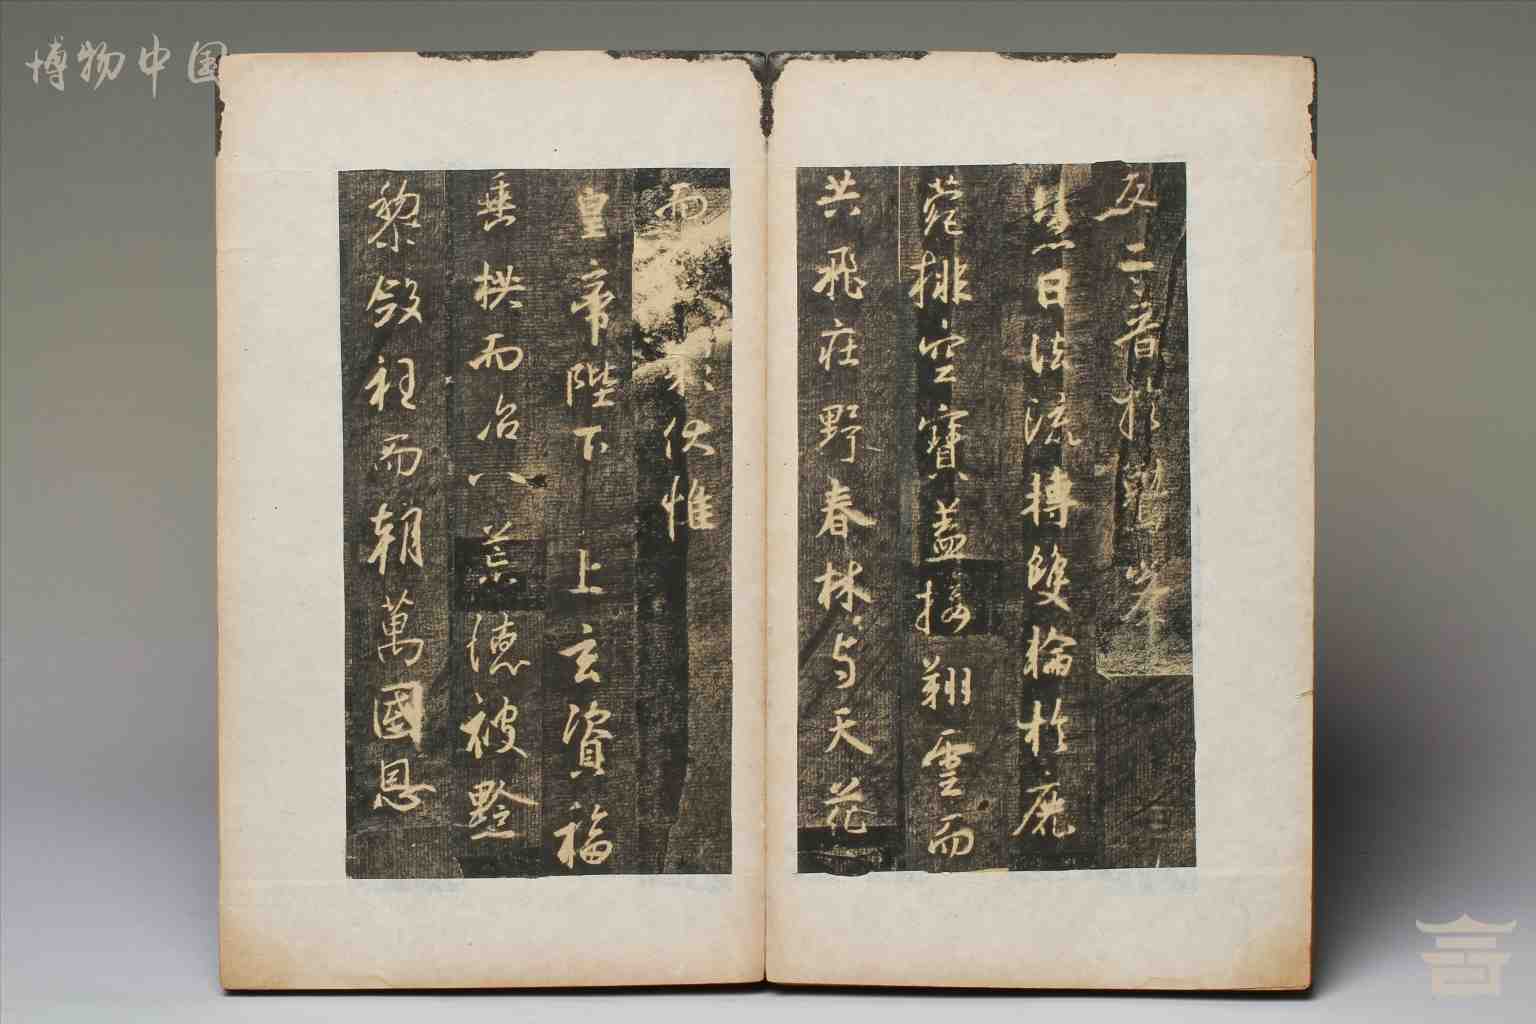 博物中国
交二音於鷲峯
慧日法流轉雙輪於鹿
菀排空寶蓋接翔雲而
共飛莊野春林与天花
而彩伏惟
皇帝陛下上玄資福
垂拱而治八荒德被黔
黎斂衽而朝萬國恩